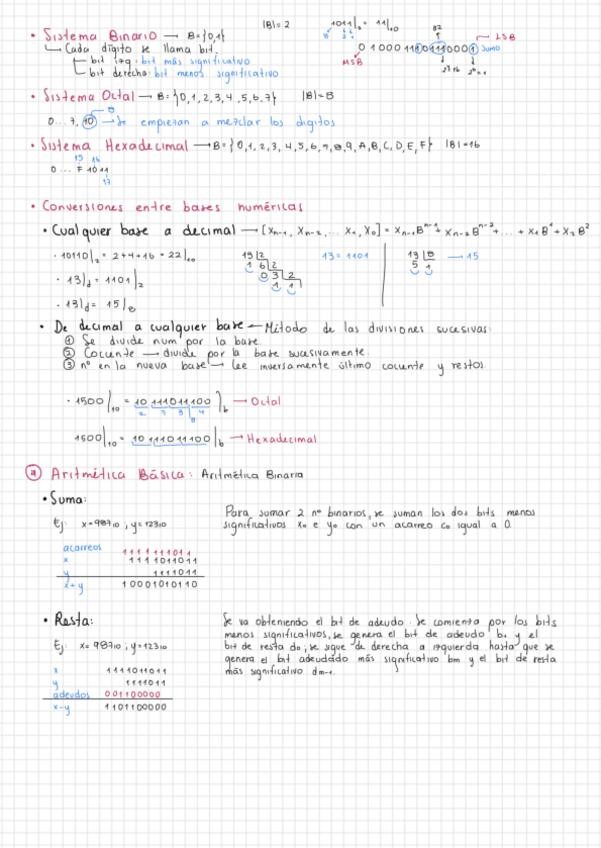 |B| = 2
• Sistema Binario → B={0,1}
1011|₂ = 11|₁₀
Cada dígito se llama bit.
bit izq: bit más significativo
bit derecha: bit menos significativo
LSB
MSB
• Sistema Octal → B={0,1,2,3,4,5,6,7} |B|=8
0...7, 10 → Se empiezan a mezclar los dígitos
• Sistema Hexadecimal → B={0,1,2,3,4,5,6,7,8,9,A,B,C,D,E,F} |B|=16
15 16
0 ... F 10 11
17
• Conversiones entre bases numéricas
• Cualquier base a decimal → [Xn-1, Xn-2, ... X1, X0] = Xn-1B^n-1 + Xn-2B^n-2 + ... + X1B^1 + X0B^0
· 10110|₂ = 2+4+16 = 22|₁₀
13 = 1101
→ 15
· 13|d = 1101|₂
· 13|d = 15|₈
• De decimal a cualquier base → Método de las divisiones sucesivas:
① Se divide num por la base.
② Cociente → divide por la base sucesivamente.
③ nº en la nueva base → Lee inversamente último cociente y restos.
· 1500|₁₀ = 10 111011100|b → Octal
1500|₁₀ = 10 111011100|b → Hexadecimal
Aritmética Básica: Aritmética Binaria
• Suma:
Ej: x=987₁₀, y=123₁₀
Para sumar 2 nº binarios, se suman los dos bits menos
significativos x₀ e y₀ con un acarreo c₀ igual a 0.
acarreos 1111111011
x 1111011011
y 1111011
x+y 10001010110
• Resta:
Ej: x=987₁₀, y=123₁₀
Se va obteniendo el bit de adeudo. Se comienza por los bits
menos significativos, se genera el bit de adeudo b₁ y el
bit de resta d₀, se sigue de derecha a izquierda hasta que se
genera el bit adeudado más significativo bm y el bit de resta
más significativo dm-1.
x 1111011011
y 1111011
adeudos 001100000
x-y 1101100000